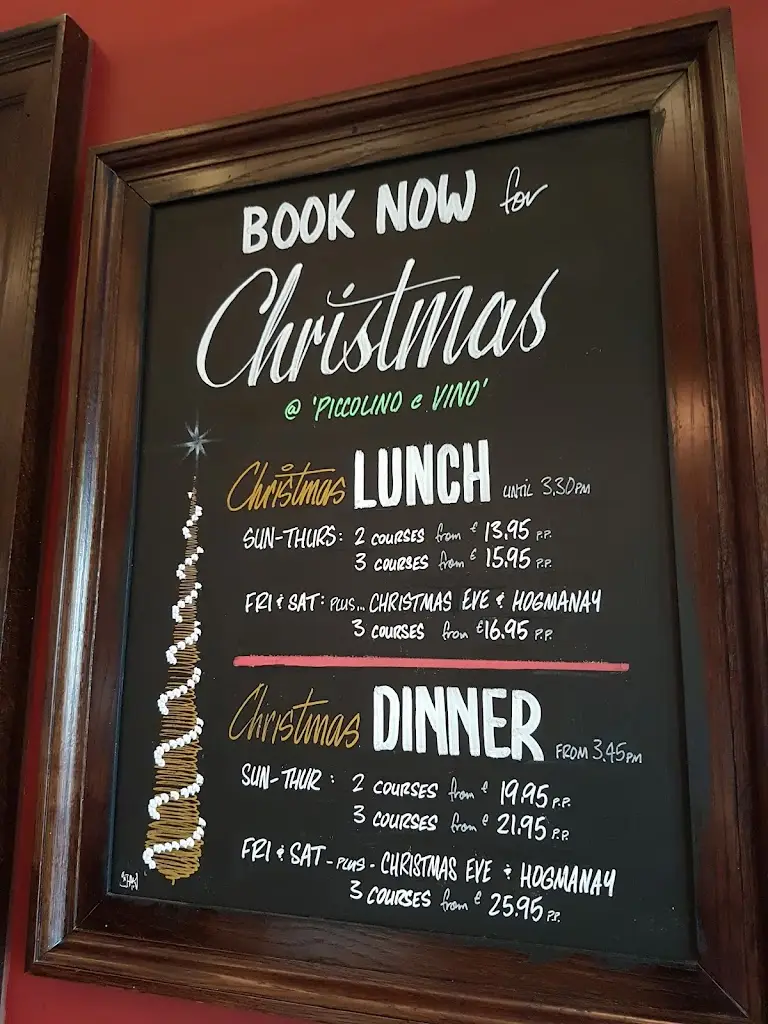 BOOK NOW for
Christmas
@ 'PICCOLINO e VINO'
Christmas LUNCH UNTIL 3.30PM
SUN-THURS: 2 COURSES from £13.95 P.P.
3 COURSES from £15.95 P.P.
FRI & SAT: PLUS... CHRISTMAS EVE & HOGMANAY
3 COURSES from £16.95 P.P.
Christmas DINNER FROM 3.45PM
SUN-THUR: 2 COURSES from £19.95 P.P.
3 COURSES from £21.95 P.P.
FRI & SAT - PLUS - CHRISTMAS EVE & HOGMANAY
3 COURSES from £25.95 P.P.